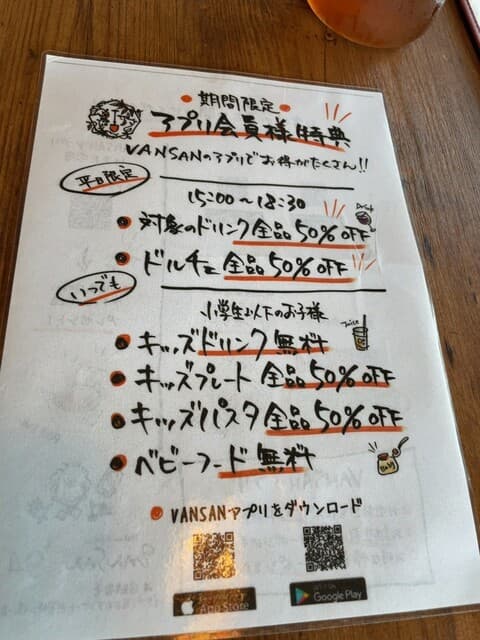 期間限定
アプリ会員様特典
VANSANのアプリでお得がたくさん!!
平日限定
15:00~18:30
Drink
対象のドリンク全品50%OFF
ドルチェ全品50%OFF
いつでも
小学生以下のお子様
Juice
キッズドリンク無料
キッズプレート全品50%OFF
キッズパスタ全品50%OFF
ベビーフード無料
VANSANアプリをダウンロード
App Store
Google Play